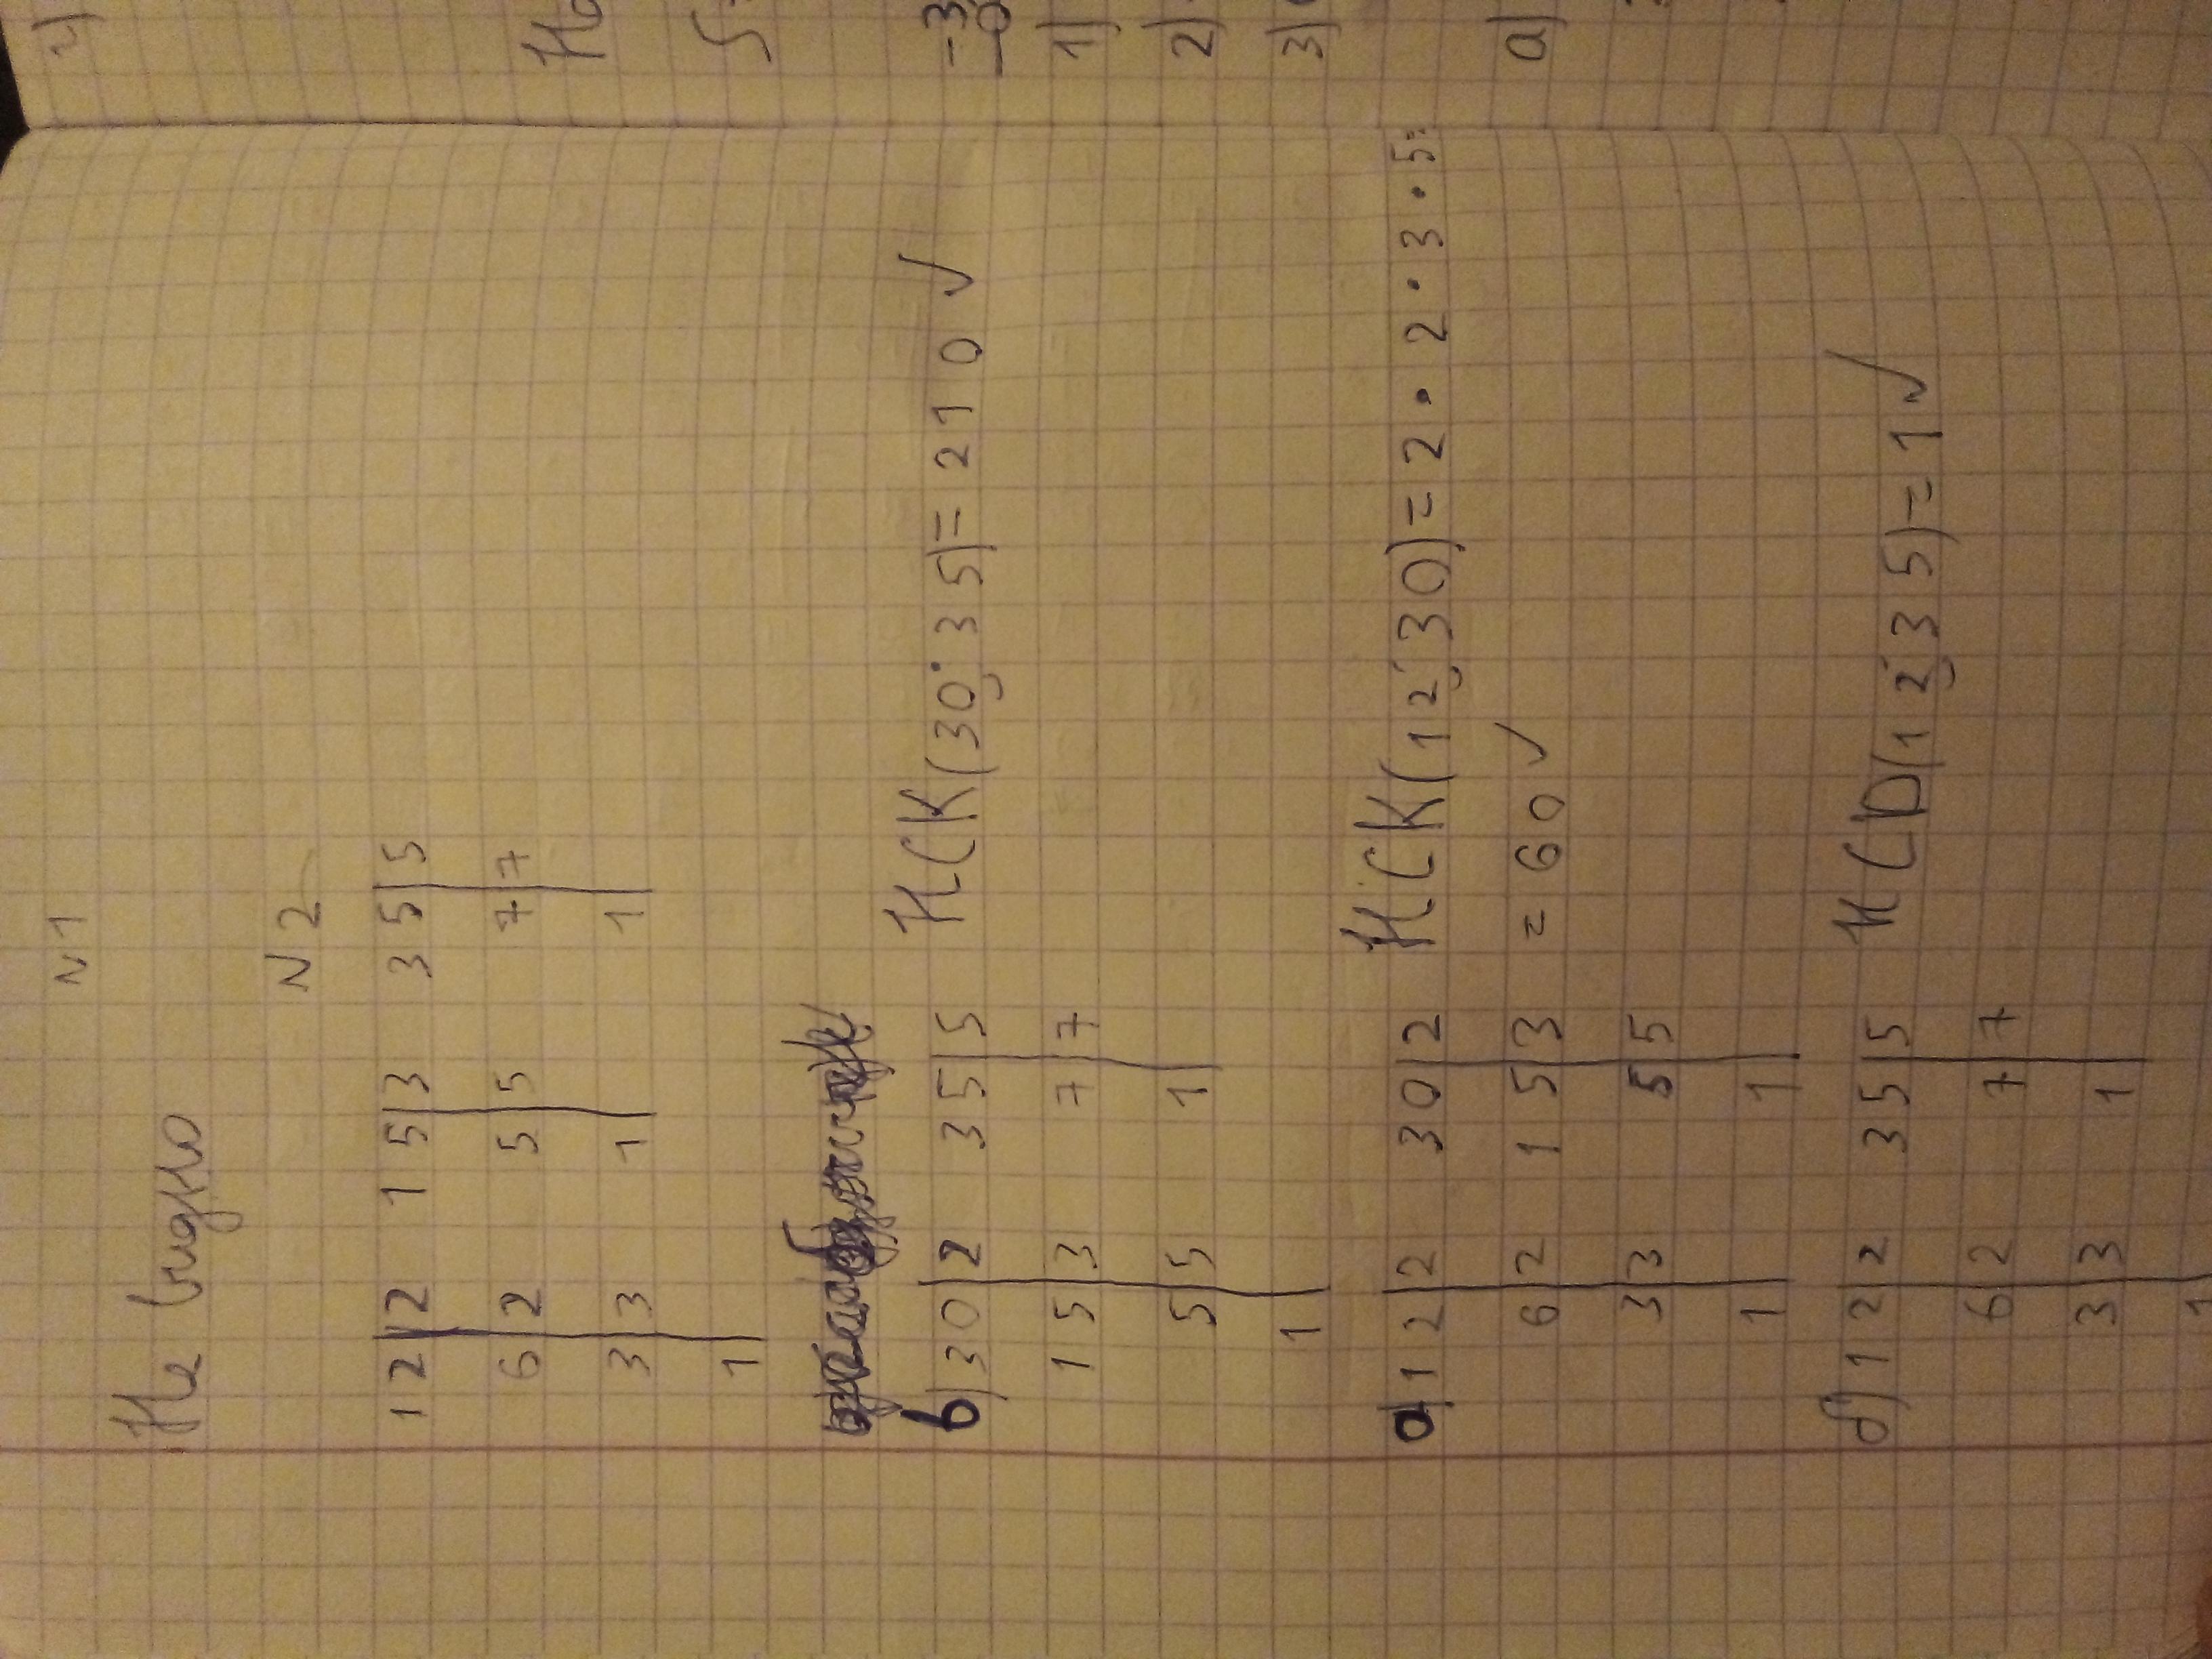 N1
Не видно
N2
12|2 15|3 35|5
6|2 5|5 7|7
3|3 1 1
1
в)30|2 35|5 НСК(30;35)=210✓
15|3 7|7
5|5 1
1
а)12|2 30|2 НСК(12;30)=2·2·3·5=
6|2 15|3 =60✓
3|3 5|5
1 1
б)12|2 35|5 НСД(12;35)=1✓
6|2 7|7
3|3 1
1
-3
1)
2)
3)
а)